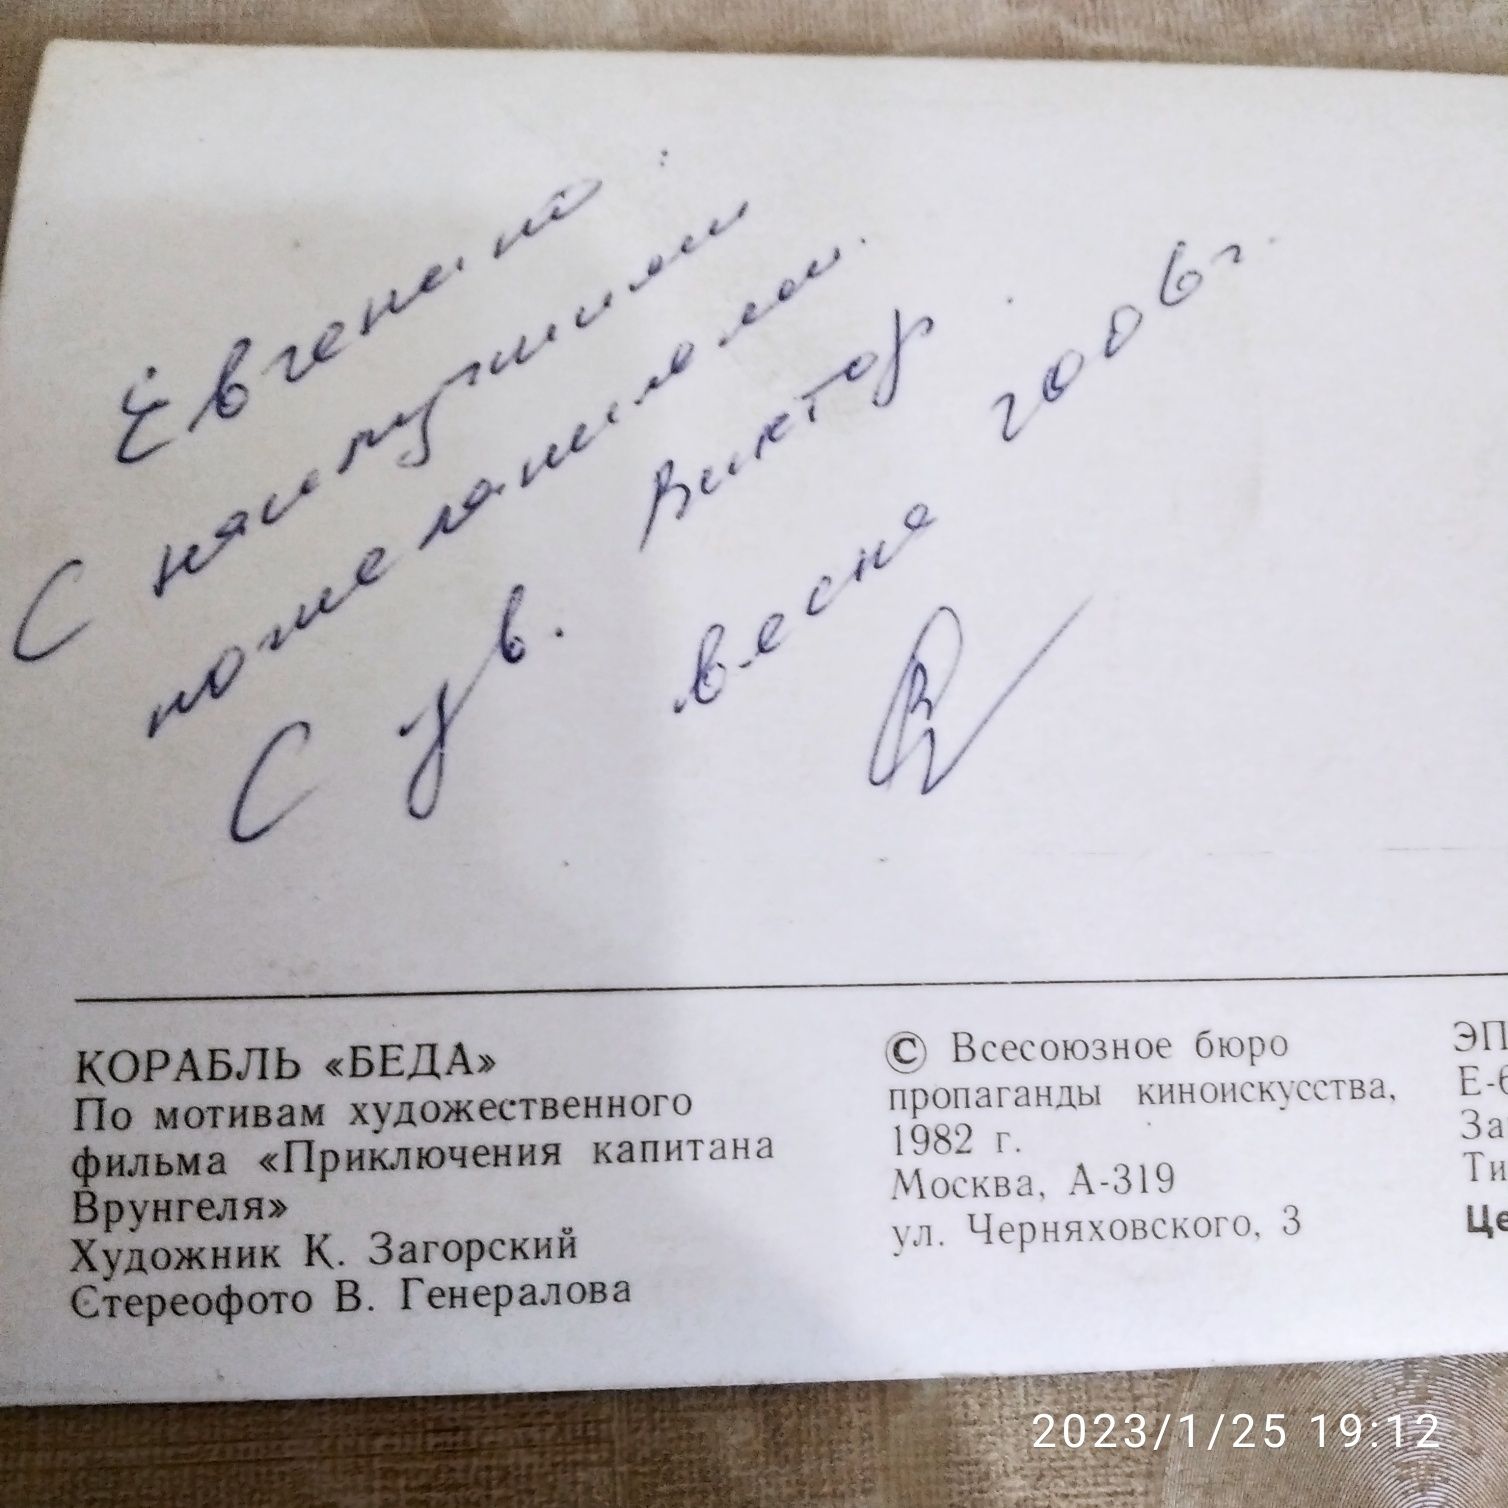 Евгению
С наилучшими
пожеланиями.
С ув. Виктор.
весна 2006г.
КОРАБЛЬ «БЕДА»
По мотивам художественного
фильма «Приключения капитана
Врунгеля»
Художник К. Загорский
Стереофото В. Генералова
© Всесоюзное бюро
пропаганды киноискусства,
1982 г.
Москва, А-319
ул. Черняховского, 3
ЭП
Е-6
За
Ти
Це
2023/1/25 19:12